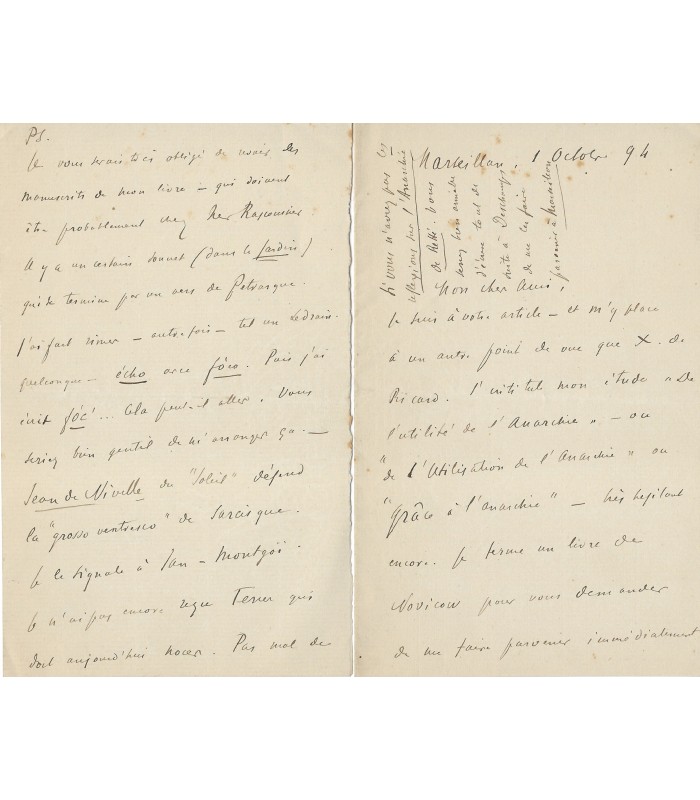 PS.
Je vous serais très obligé de revoir les
manuscrits de mon livre – qui doivent
être probablement chez
Il y a un certain sonnet (dans le Jardin)
qui se termine par un vers de Pétrarque.
J'ai fait rimer – autrefois – tel un Ledrain
quelconque – écho avec fôco. Puis j'ai
écrit fôc'... Cela peut-il aller. Vous
seriez bien gentil de m'arranger ça. –
Jean de Nivelle du "Soleil" défend
la "grosso ventresco" de Sarcisque.
Je le signale à Jan-Montgòï.
Je n'ai pas encore reçu Ferrer qui
doit aujourd'hui nocer. Pas mal de
Marseillan, 1 Octobre 94
Si vous n'avez pas les
réflexions sur l'Anarchie
de Retté. Vous
serez bien aimable
d'écrire tout de
suite à Deschamps
de me les faire
parvenir à Marseillan
Mon cher Ami,
Je suis à votre article – et m'y place
à un autre point de vue que X. de
Ricard. J'intitul mon étude "De
l'utilité de l'Anarchie" – ou
"de l'Utilisation de l'Anarchie" ou
"grâce à l'anarchie" – très hésitant
encore. Je ferme un livre de
Novicow pour vous demander
de me faire parvenir immédiatement